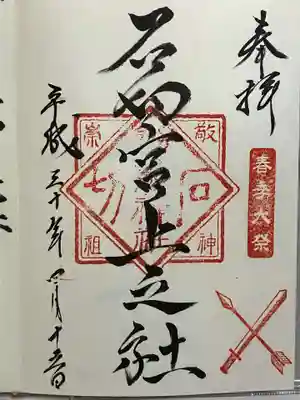 奉拝
春季大祭
石切宮上之社
敬神
崇祖
平成三十年四月十五日